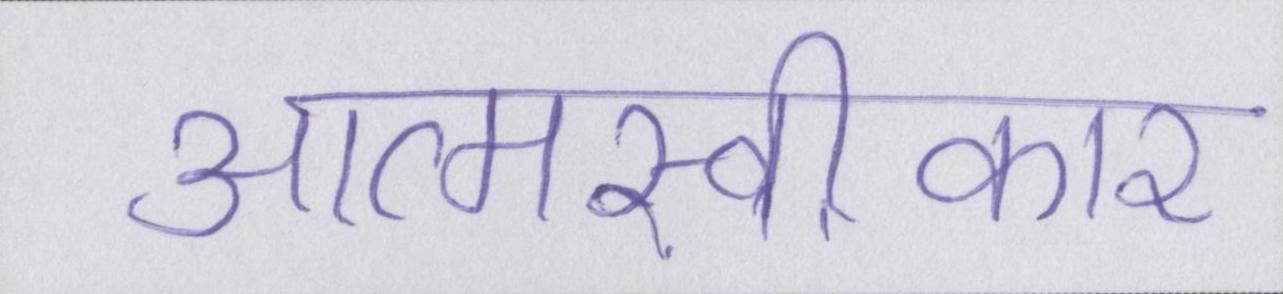 आत्मस्वीकार